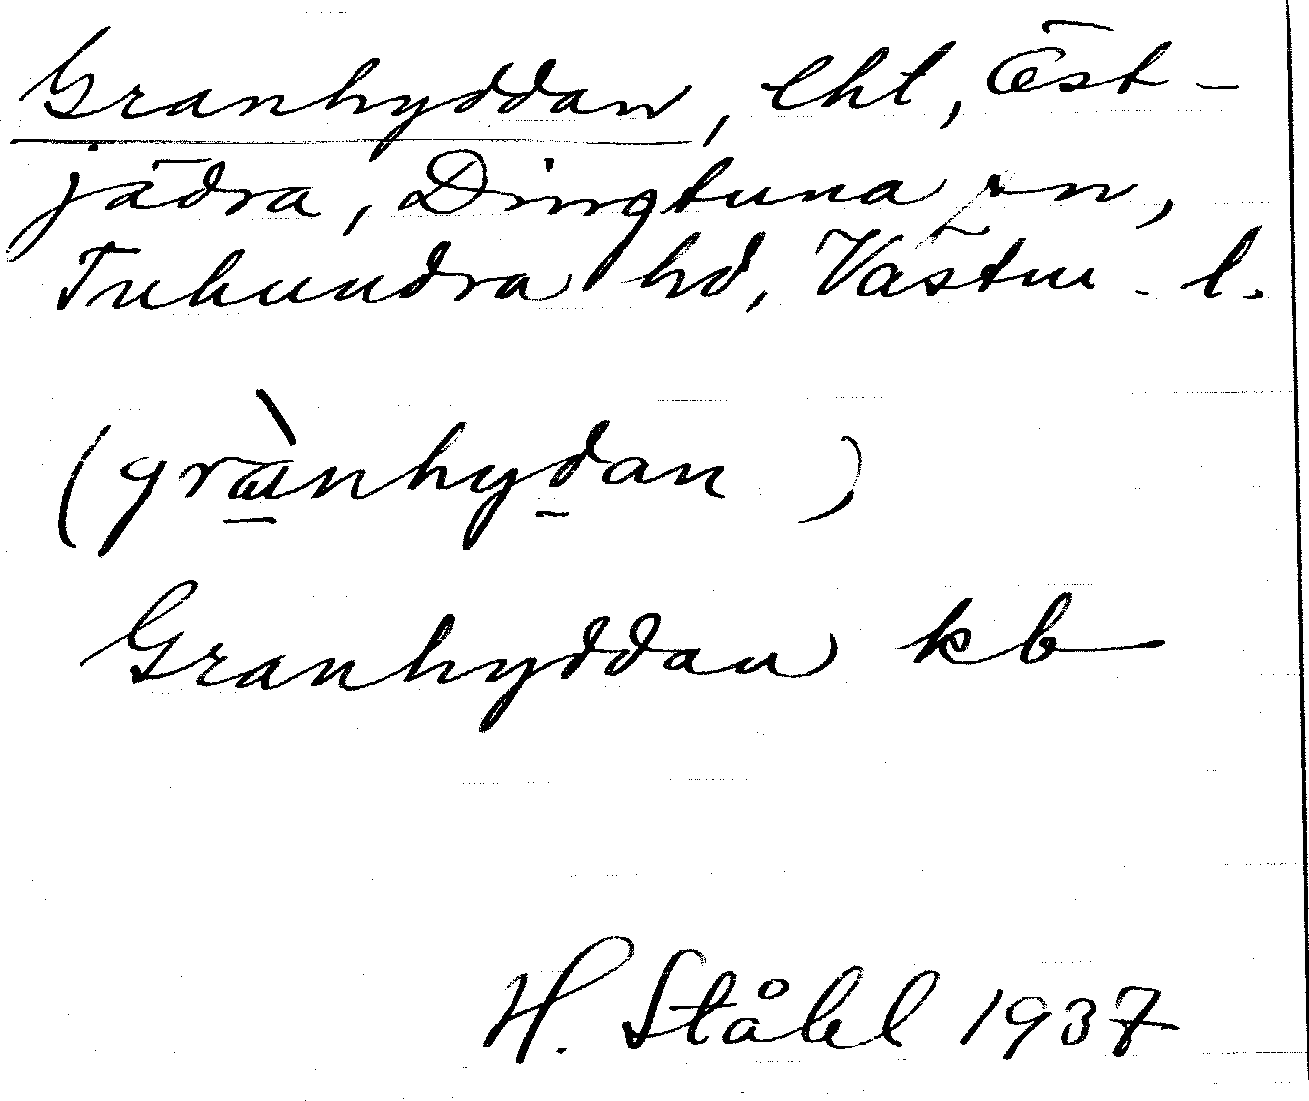 Granhyddan, lht, Öst-
jädra, Dingtuna sn,
Tuhundra hd, Västm. l.
(grànhydan)
Granhyddan kb
H. Ståhl 1937